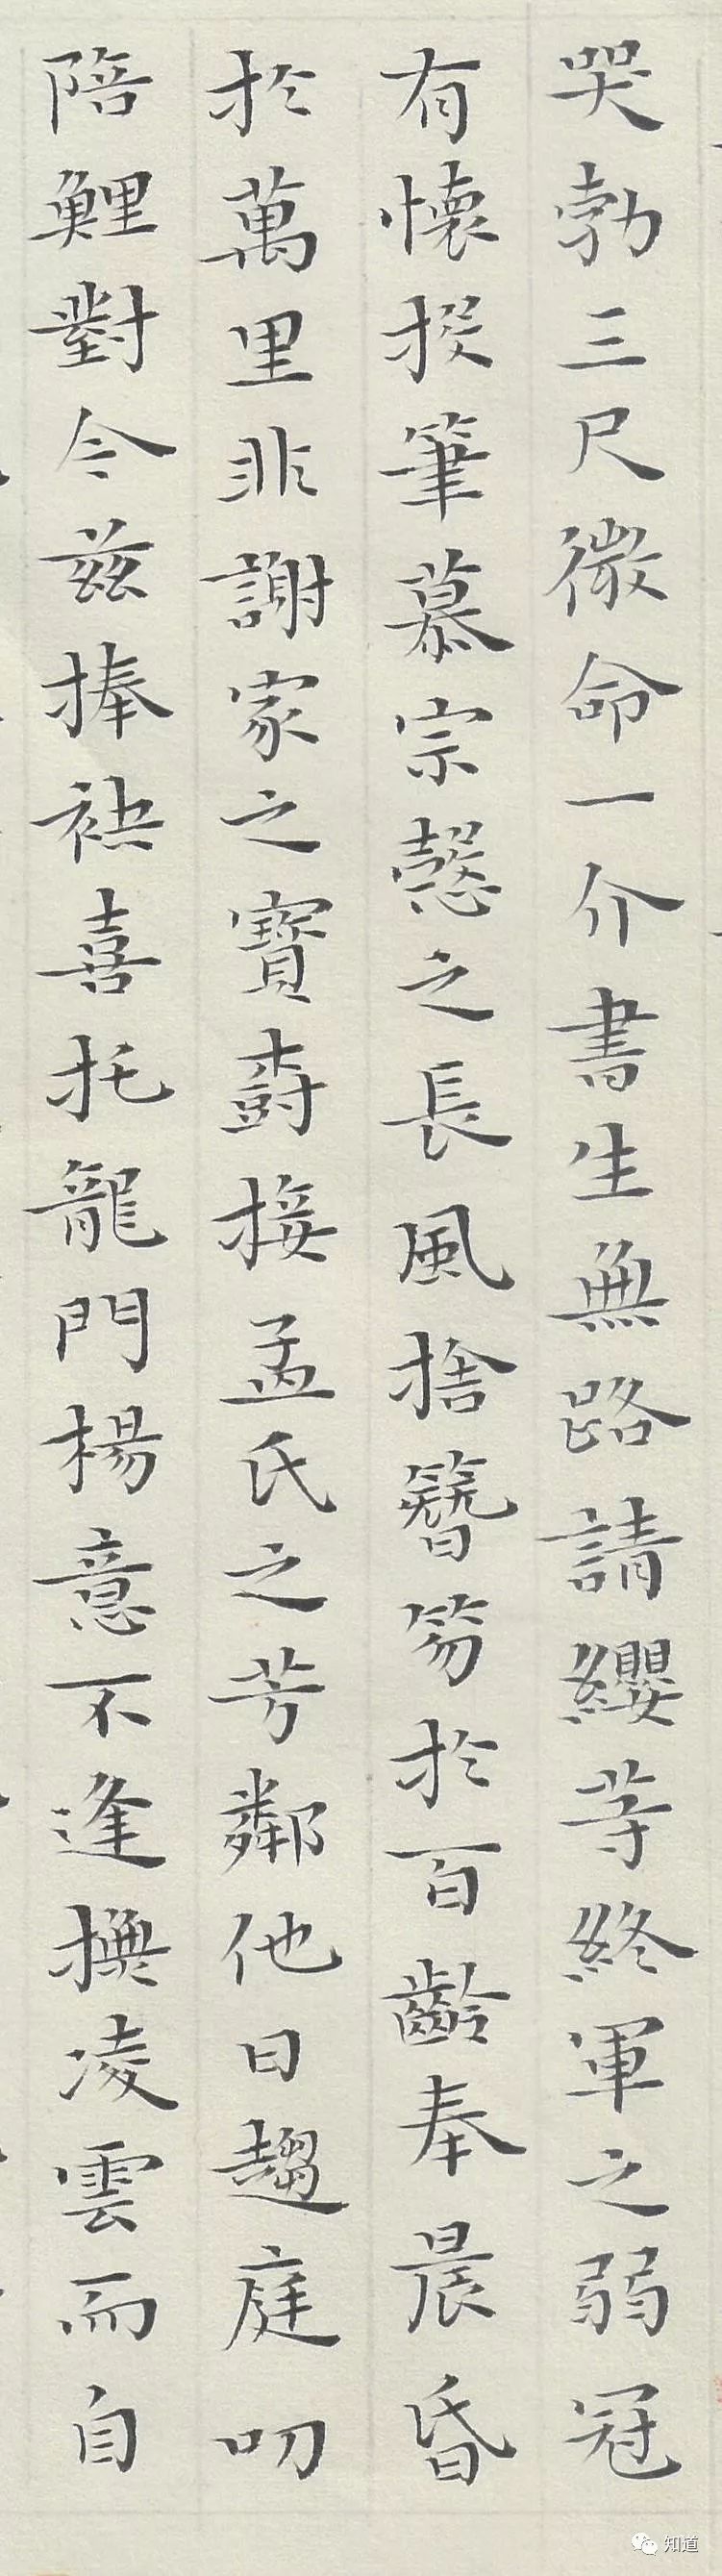 哭勃三尺微命一介書生無路請纓等終軍之弱冠
有懷投筆慕宗慤之長風捨簪笏於百齡奉晨昏
於萬里非謝家之寶尌接孟氏之芳鄰他日趨庭叨
陪鯉對今兹捧袂喜托龍門楊意不逢撫凌雲而自
知道